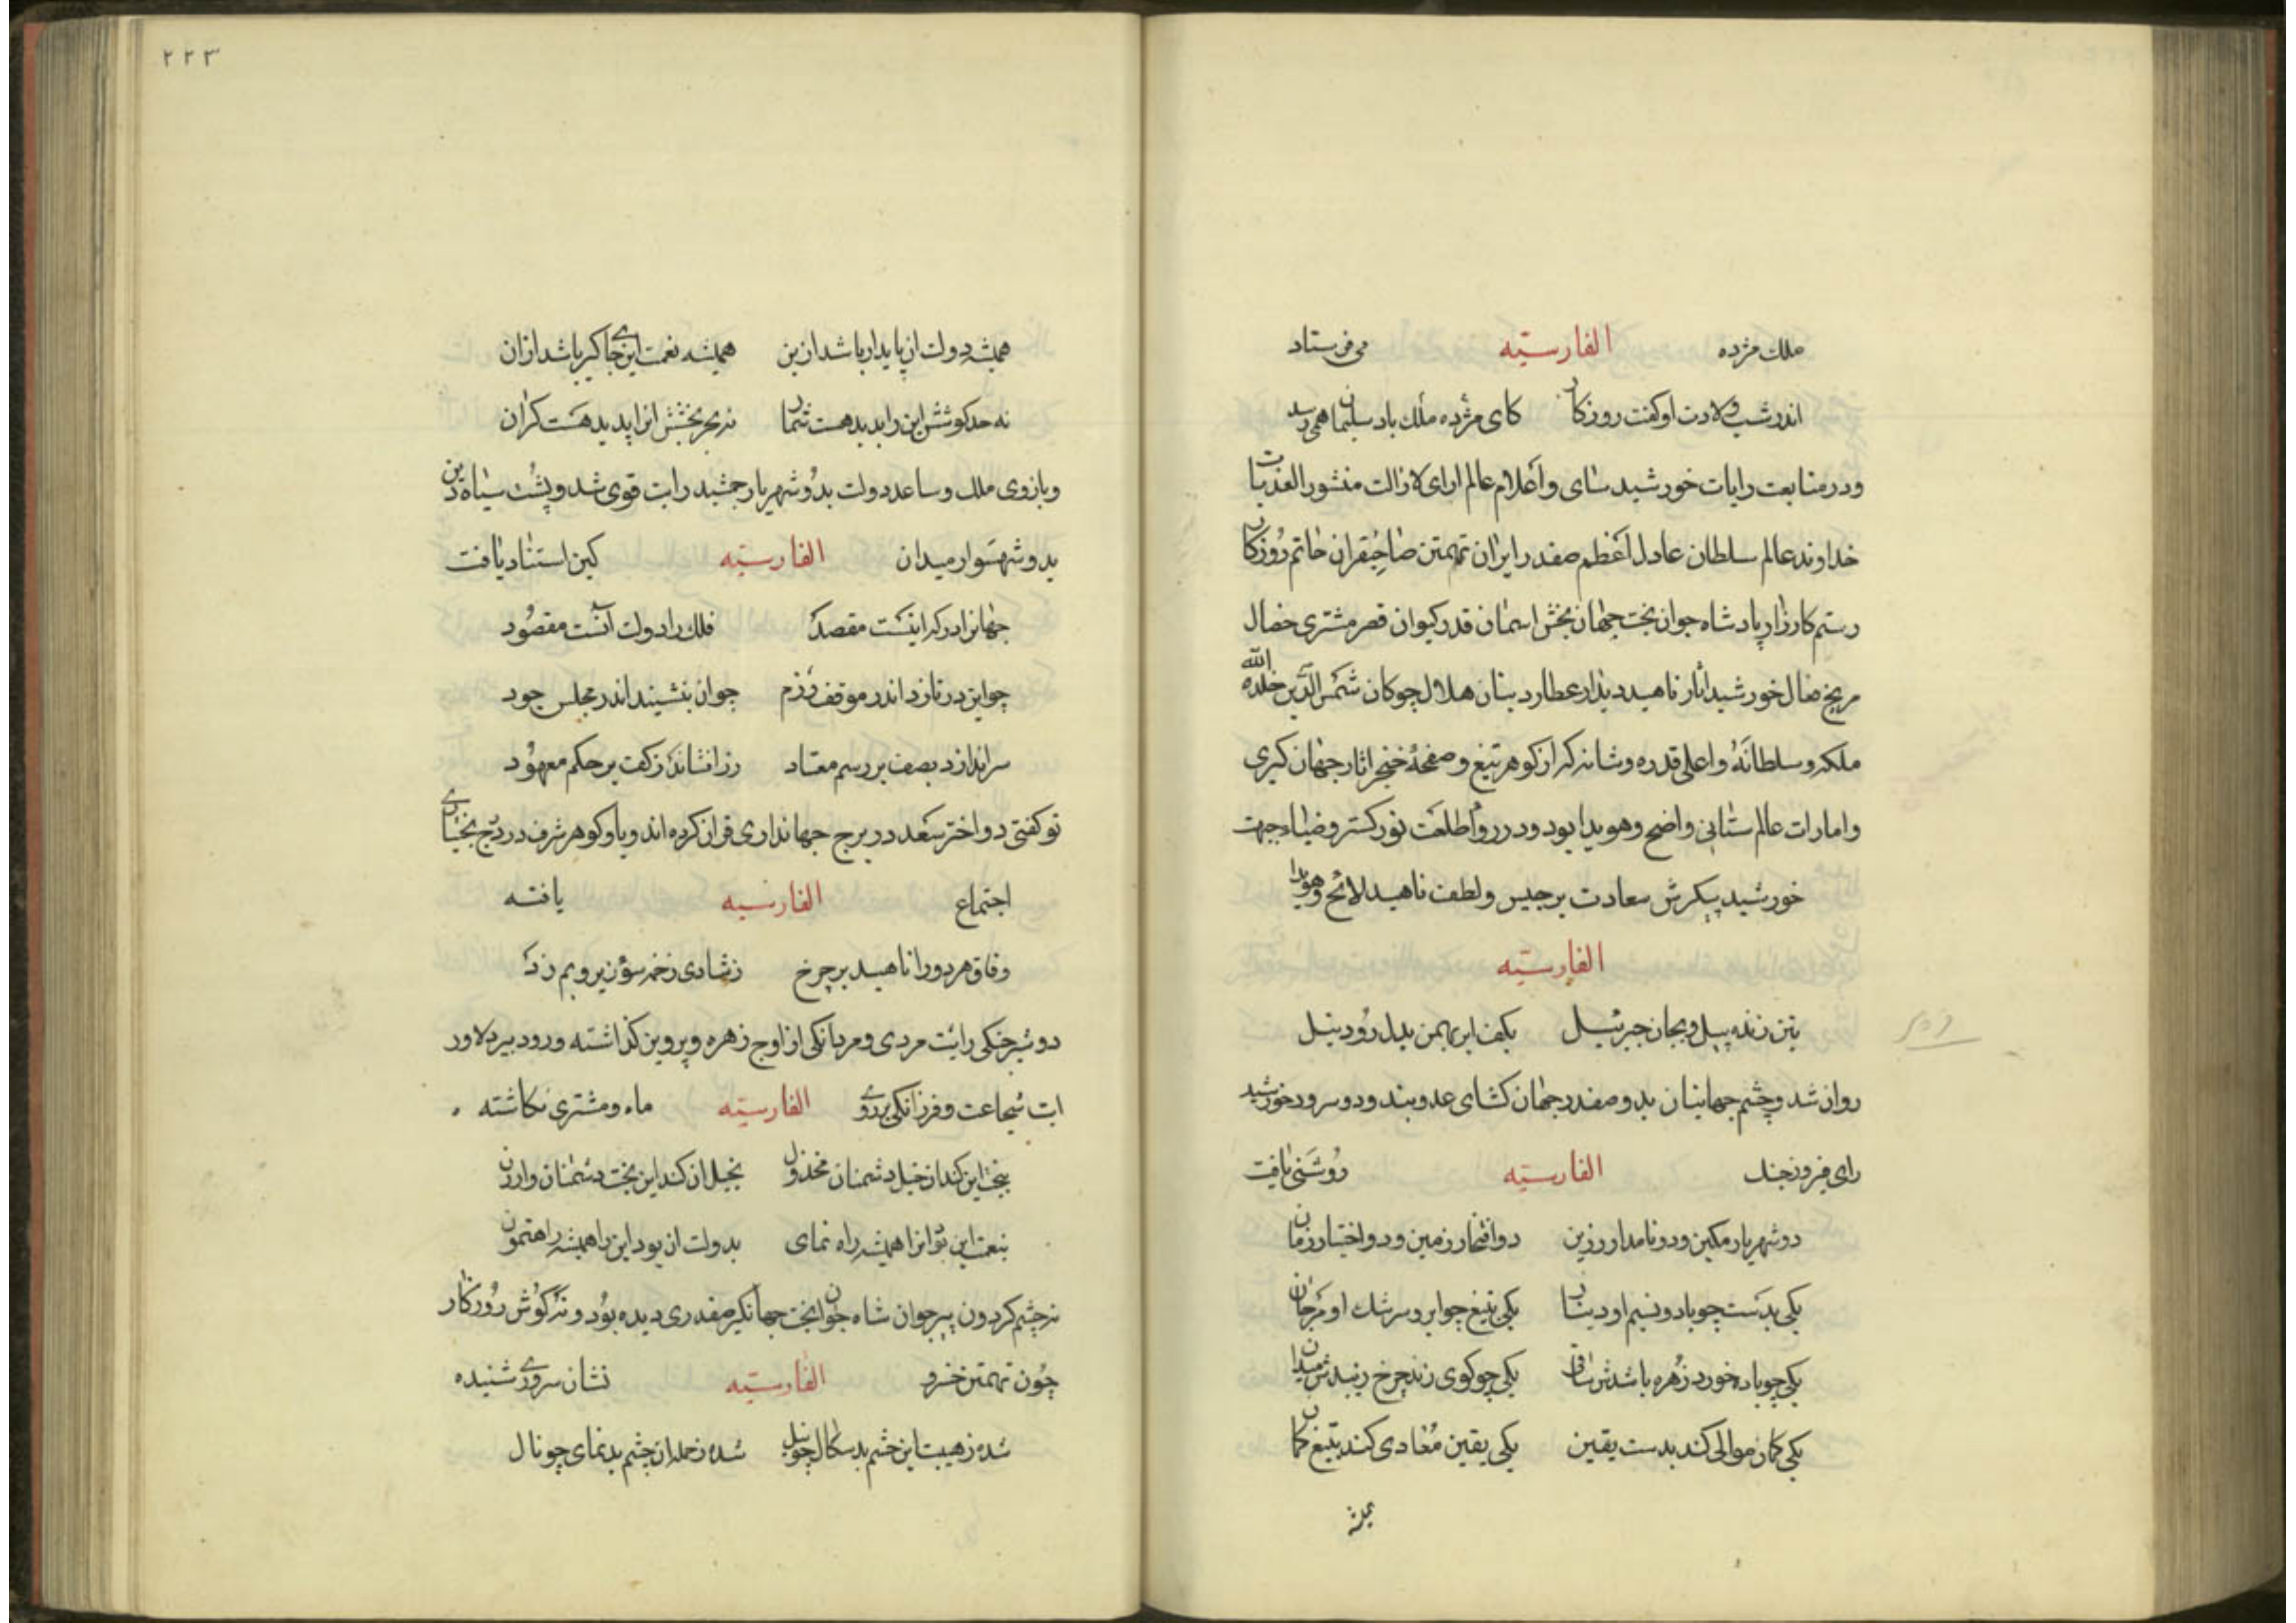 ملك مژده الفارسیّه می فرستاد
اندر شب ولادت او کفت روزکار کای مژده ملك باد سلیمان همی رسد
ودر متابعت رایات خورشید سای واعلام عالم ارای لازالت منشور العذبات
خداوند عالم سلطان عادل اعظم صفدر ایران تهمتن صاحبقران حاتم روزکار
رستم کارزار پادشاه جوان بخت جهان بخش اسمان قدر کیوان قصر مشتری خصال
مریخ صال خورشید اثار ناهید دیدار عطارد بنان هلال چوکان شمس الدین خلد الله
ملکه وسلطانه واعلی قدره وشانه که از کوهر تیغ وصفحهٔ خنجر اثار جهان کیری
وامارات عالم ستانی واضح وهویدا بود ودر رواء طلعت نور کستر وضیاء جبهت
خورشید پیکرش سعادت برجیس ولطف ناهید لائح وهویدا
الفارسیّه
بتن زنده پیل وبجان جبرئیل بکف ابر بهمن بدل رود نیل
روان شد وچشم جهانیان بدو صفدر جهان کشای عدو بند ودو سرور خورشید
رای فیروز جنك الفارسیّه روشنی یافت
دو شهریار مکین ودو نامدار رزین دو افتخار زمین ودو اختیار زمان
یکی بدست چو باد ونسیم او دینار یکی بتیغ چو ابر وسرشك او مرجان
یکی چو باده خورد زهره باشدش ساقی یکی چو کوی زند چرخ زیبدش میدان
یکی کمان موالی کند بدست یقین یکی یقین معادی کند بتیغ کمان
همیشه
۲۲۳
همیشه دولت ان پایدار باشد ازین همیشه نعمت این جای کیر باشد ازان
نه حد کوشش این را بدید هست شمار نه بحر بخشش انرا پدید هست کران
وبازوی ملك وساعد دولت بدو شهریار جمشید رایت قوی شد وپشت سپاه دین
بدو شهسوار میدان الفارسیّه کین استناد یافت
جهانرا در که اینست مقصد فلك را دولت آنست مقصود
چو این در تازد اندر موقف رزم چو ان بنشیند اندر مجلس جود
سر اندازد بصف بر رسم معتاد زر افشاند ز کف بر حکم معهود
تو کفتی دو اختر سعد در برج جهانداری قران کرده اند ویا دو کوهر شرف در درج بختیاری
اجتماع الفارسیه یافته
وفاق هر دو را ناهید بر چرخ ز شادی زخمه سوی زیر وبم زد
دو شیر جنکی رایت مردی ومردانکی از اوج زهره وپروین کذاشته ودو ببر دلاور
ایت شجاعت وفرزانکی بر روی الفارسیّه ماه ومشتری نکاشته
ببخت این کند ان خیل دشمنان مخذول بخیل ان کند این بخت دشمنان وارون
بنعمت این بود انرا همیشه راه نمای بدولت ان بود این را همیشه راهنمون
نه چشم کردون پیر چو ان شاه جوان بخت جهانکیر صفدری دیده بود ونه کوش روزکار
چون تهمتن خسرو الفارسیّه نشان سروری شنیده
شده ز هیبت این خشم بد سکال چو نیل شده ز حمله ان چشم بد نمای چو نال